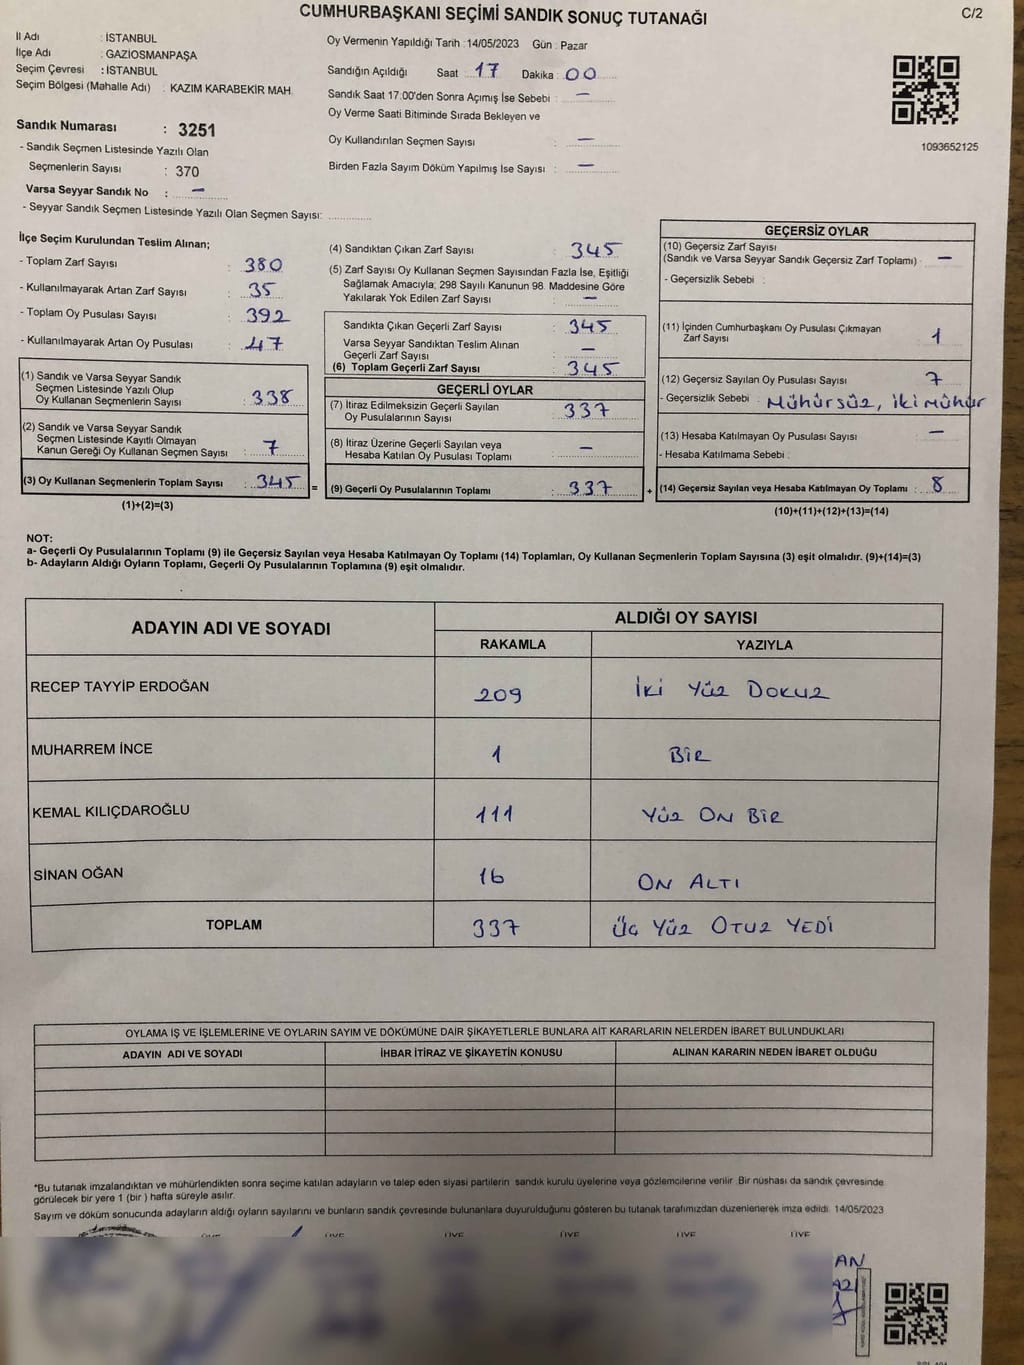 CUMHURBAŞKANI SEÇİMİ SANDIK SONUÇ TUTANAĞI
C/2
İl Adı : İSTANBUL
İlçe Adı : GAZİOSMANPAŞA
Seçim Çevresi : İSTANBUL
Seçim Bölgesi (Mahalle Adı) : KAZIM KARABEKİR MAH.
Sandık Numarası : 3251
- Sandık Seçmen Listesinde Yazılı Olan
Seçmenlerin Sayısı : 370
Varsa Seyyar Sandık No : —
- Seyyar Sandık Seçmen Listesinde Yazılı Olan Seçmen Sayısı:
Oy Vermenin Yapıldığı Tarih : 14/05/2023 Gün : Pazar
Sandığın Açıldığı Saat 17 Dakika : 00
Sandık Saat 17.00'den Sonra Açımış İse Sebebi : —
Oy Verme Saati Bitiminde Sırada Bekleyen ve
Oy Kullandırılan Seçmen Sayısı : —
Birden Fazla Sayım Döküm Yapılmış İse Sayısı : —
1093652125
İlçe Seçim Kurulundan Teslim Alınan;
- Toplam Zarf Sayısı : 380
- Kullanılmayarak Artan Zarf Sayısı : 35
- Toplam Oy Pusulası Sayısı : 392
- Kullanılmayarak Artan Oy Pusulası : 47
(1) Sandık ve Varsa Seyyar Sandık
Seçmen Listesinde Yazılı Olup
Oy Kullanan Seçmenlerin Sayısı : 338
(2) Sandık ve Varsa Seyyar Sandık
Seçmen Listesinde Kayıtlı Olmayan
Kanun Gereği Oy Kullanan Seçmen Sayısı : 7
(3) Oy Kullanan Seçmenlerin Toplam Sayısı : 345 =
(1)+(2)=(3)
(4) Sandıktan Çıkan Zarf Sayısı : 345
(5) Zarf Sayısı Oy Kullanan Seçmen Sayısından Fazla İse, Eşitliği
Sağlamak Amacıyla; 298 Sayılı Kanunun 98. Maddesine Göre
Yakılarak Yok Edilen Zarf Sayısı : —
Sandıkta Çıkan Geçerli Zarf Sayısı : 345
Varsa Seyyar Sandıktan Teslim Alınan
Geçerli Zarf Sayısı : —
(6) Toplam Geçerli Zarf Sayısı : 345
GEÇERLİ OYLAR
(7) İtiraz Edilmeksizin Geçerli Sayılan
Oy Pusulalarının Sayısı : 337
(8) İtiraz Üzerine Geçerli Sayılan veya
Hesaba Katılan Oy Pusulası Toplamı : —
(9) Geçerli Oy Pusulalarının Toplamı : 337 +
GEÇERSİZ OYLAR
(10) Geçersiz Zarf Sayısı
(Sandık ve Varsa Seyyar Sandık Geçersiz Zarf Toplamı) : —
- Geçersizlik Sebebi :
(11) İçinden Cumhurbaşkanı Oy Pusulası Çıkmayan
Zarf Sayısı : 1
(12) Geçersiz Sayılan Oy Pusulası Sayısı : 7
- Geçersizlik Sebebi : Mühürsüz, iki mühür
(13) Hesaba Katılmayan Oy Pusulası Sayısı : —
- Hesaba Katılmama Sebebi :
(14) Geçersiz Sayılan veya Hesaba Katılmayan Oy Toplamı : 8
(10)+(11)+(12)+(13)=(14)
NOT:
a- Geçerli Oy Pusulalarının Toplamı (9) ile Geçersiz Sayılan veya Hesaba Katılmayan Oy Toplamı (14) Toplamları, Oy Kullanan Seçmenlerin Toplam Sayısına (3) eşit olmalıdır. (9)+(14)=(3)
b- Adayların Aldığı Oyların Toplamı, Geçerli Oy Pusulalarının Toplamına (9) eşit olmalıdır.
ADAYIN ADI VE SOYADI
ALDIĞI OY SAYISI
RAKAMLA YAZIYLA
RECEP TAYYİP ERDOĞAN 209 İki Yüz Dokuz
MUHARREM İNCE 1 Bir
KEMAL KILIÇDAROĞLU 111 Yüz On Bir
SİNAN OĞAN 16 On Altı
TOPLAM 337 Üç Yüz Otuz Yedi
OYLAMA İŞ VE İŞLEMLERİNE VE OYLARIN SAYIM VE DÖKÜMÜNE DAİR ŞİKAYETLERLE BUNLARA AİT KARARLARIN NELERDEN İBARET BULUNDUKLARI
ADAYIN ADI VE SOYADI İHBAR İTİRAZ VE ŞİKAYETİN KONUSU ALINAN KARARIN NEDEN İBARET OLDUĞU
*Bu tutanak imzalandıktan ve mühürlendikten sonra seçime katılan adayların ve talep eden siyasi partilerin sandık kurulu üyelerine veya gözlemcilerine verilir. Bir nüshası da sandık çevresinde
görülecek bir yere 1 (bir ) hafta süreyle asılır.
Sayım ve döküm sonucunda adayların aldığı oyların sayılarını ve bunların sandık çevresinde bulunanlara duyurulduğunu gösteren bu tutanak tarafımızdan düzenlenerek imza edildi. 14/05/2023
ÜYE ÜYE ÜYE ÜYE ÜYE ÜYE
AN